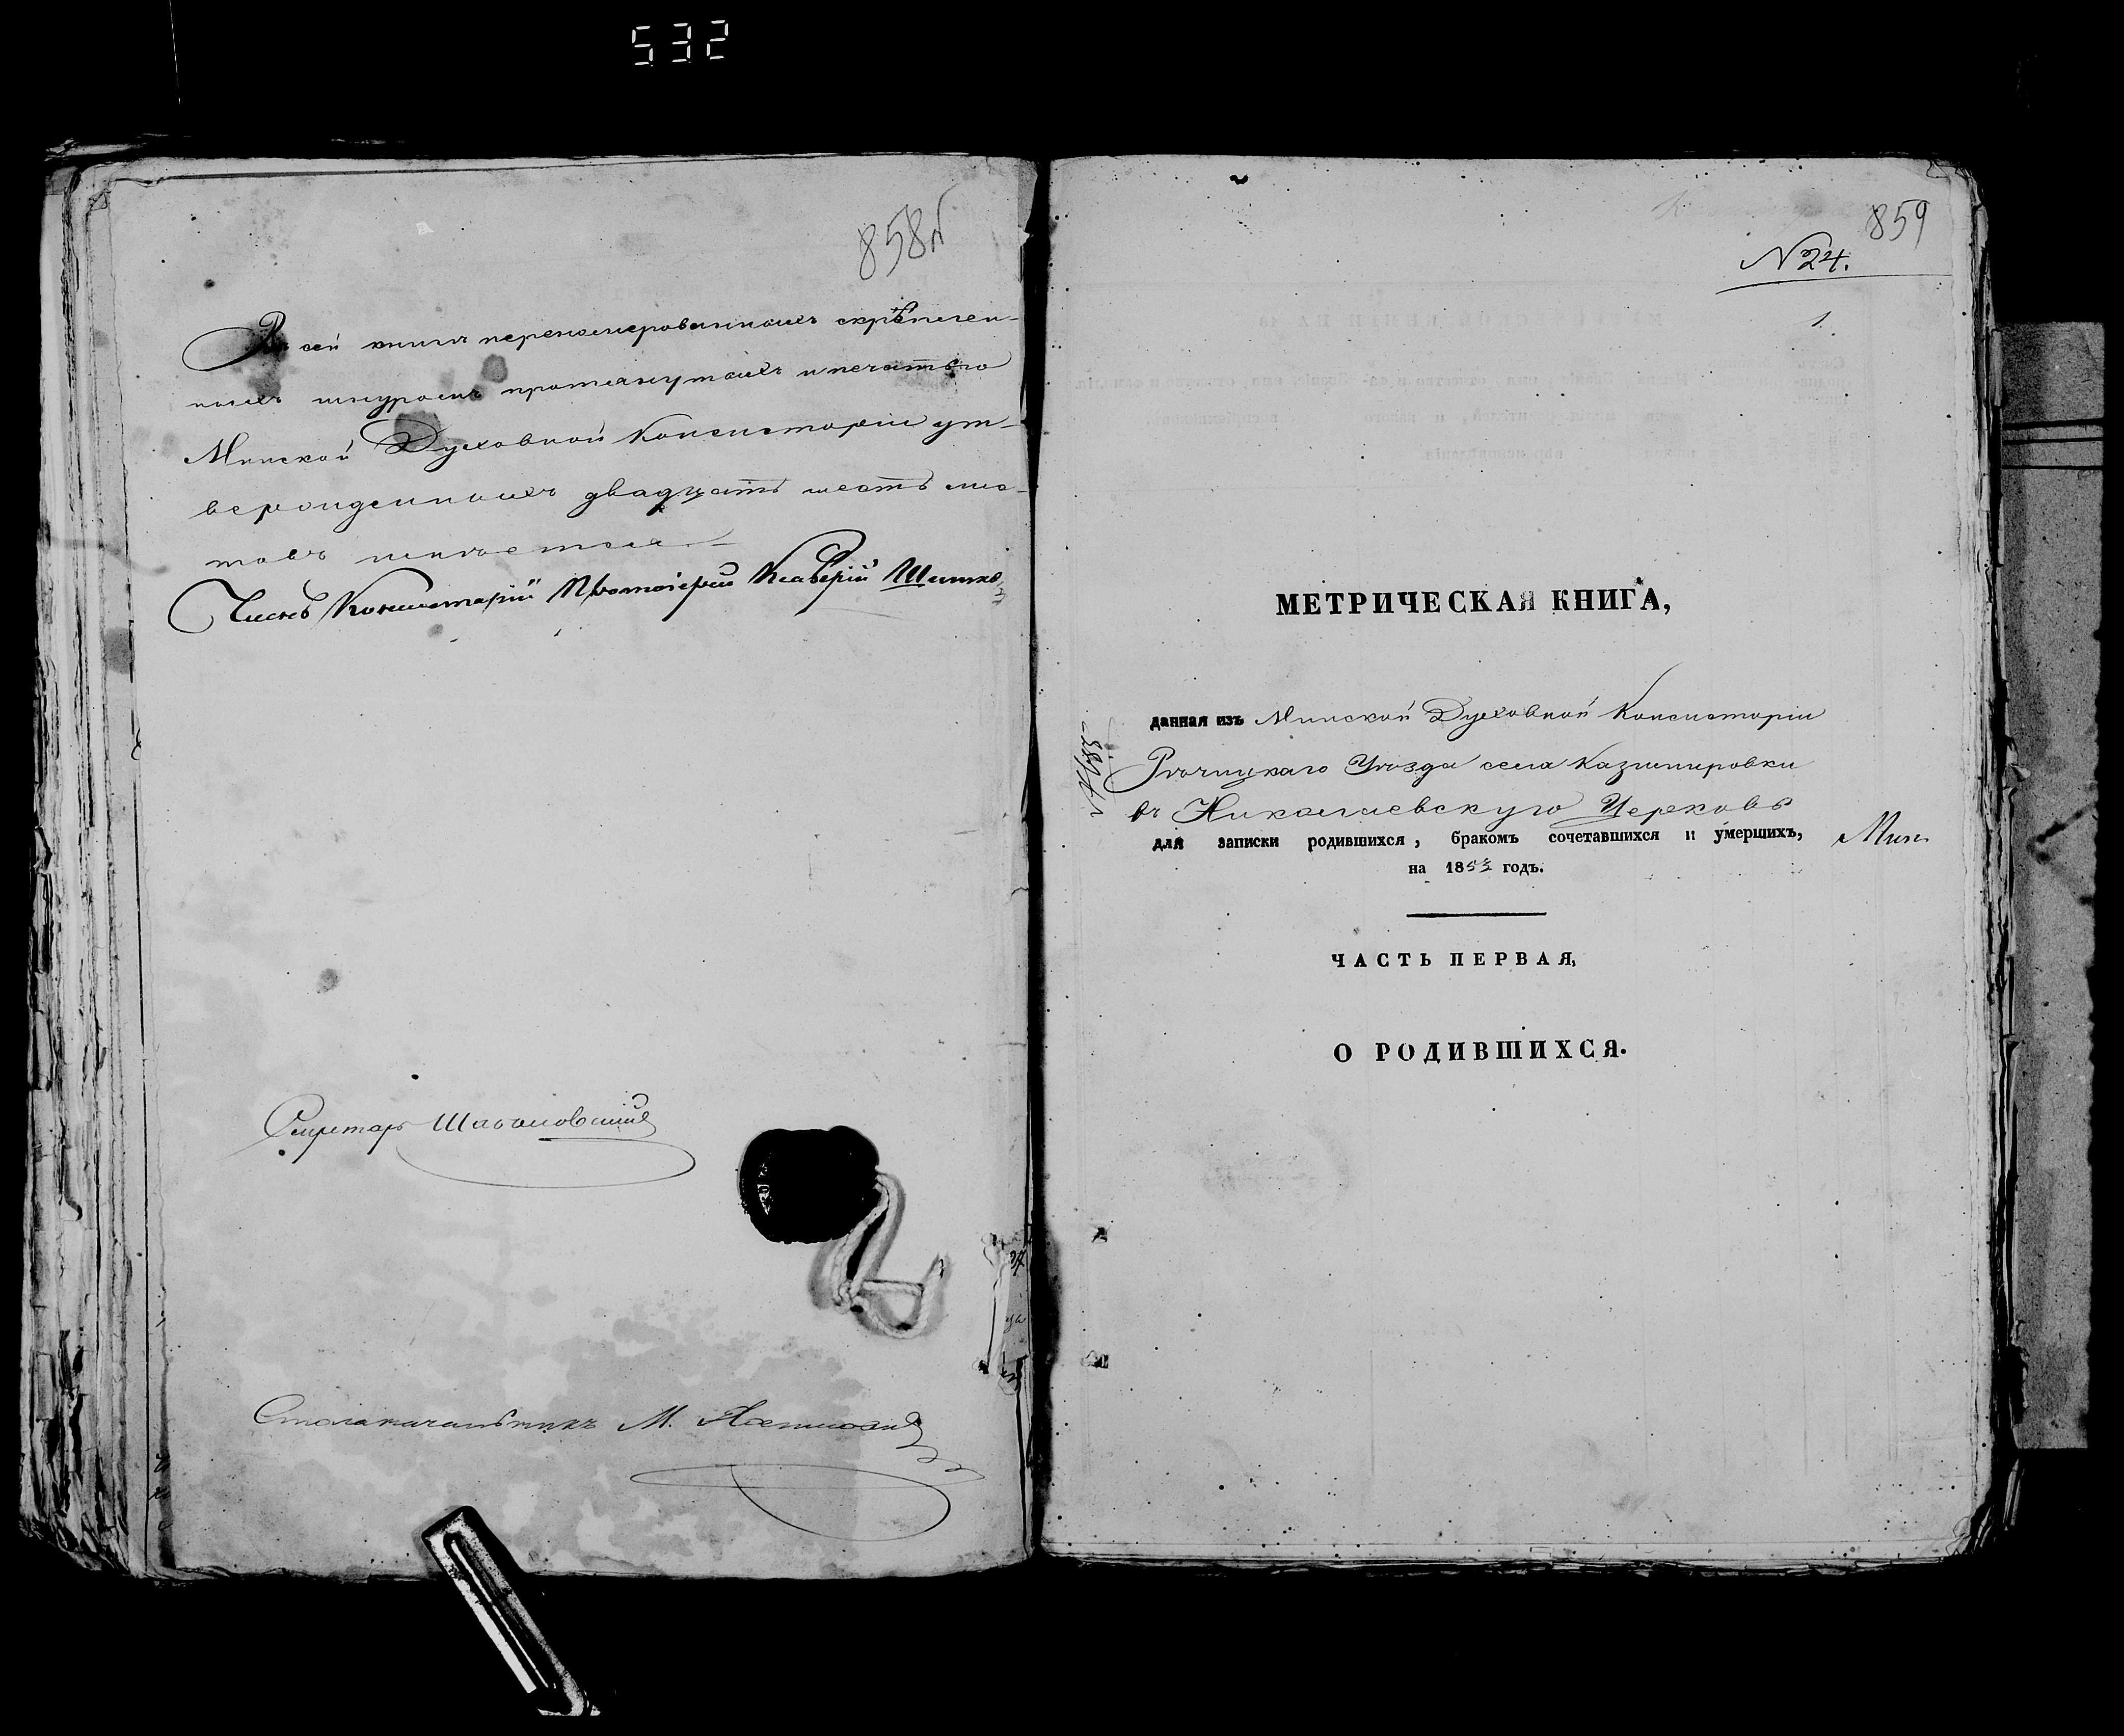 532
858
Въ сей книгѣ перенумерованныхъ скрѣплен-
ныхъ шнуромъ протянутыхъ и печатью
Минской Духовной Консисторіи ут-
вержденныхъ двадцать шесть лис-
товъ имѣется
Членъ Консисторіи Протоіерей
Секретарь
Столоначальникъ М.
859
N 24.
1.
МЕТРИЧЕСКАЯ КНИГА,
данная изъ Минской Духовной Консисторіи
Рѣчицкаго Уѣзда села Казимировки
въ Николаевскую Церковь
для записки родившихся, бракомъ сочетавшихся и умершихъ,
Мин.
на 1853 годъ.
ЧАСТЬ ПЕРВАЯ,
О РОДИВШИХСЯ.